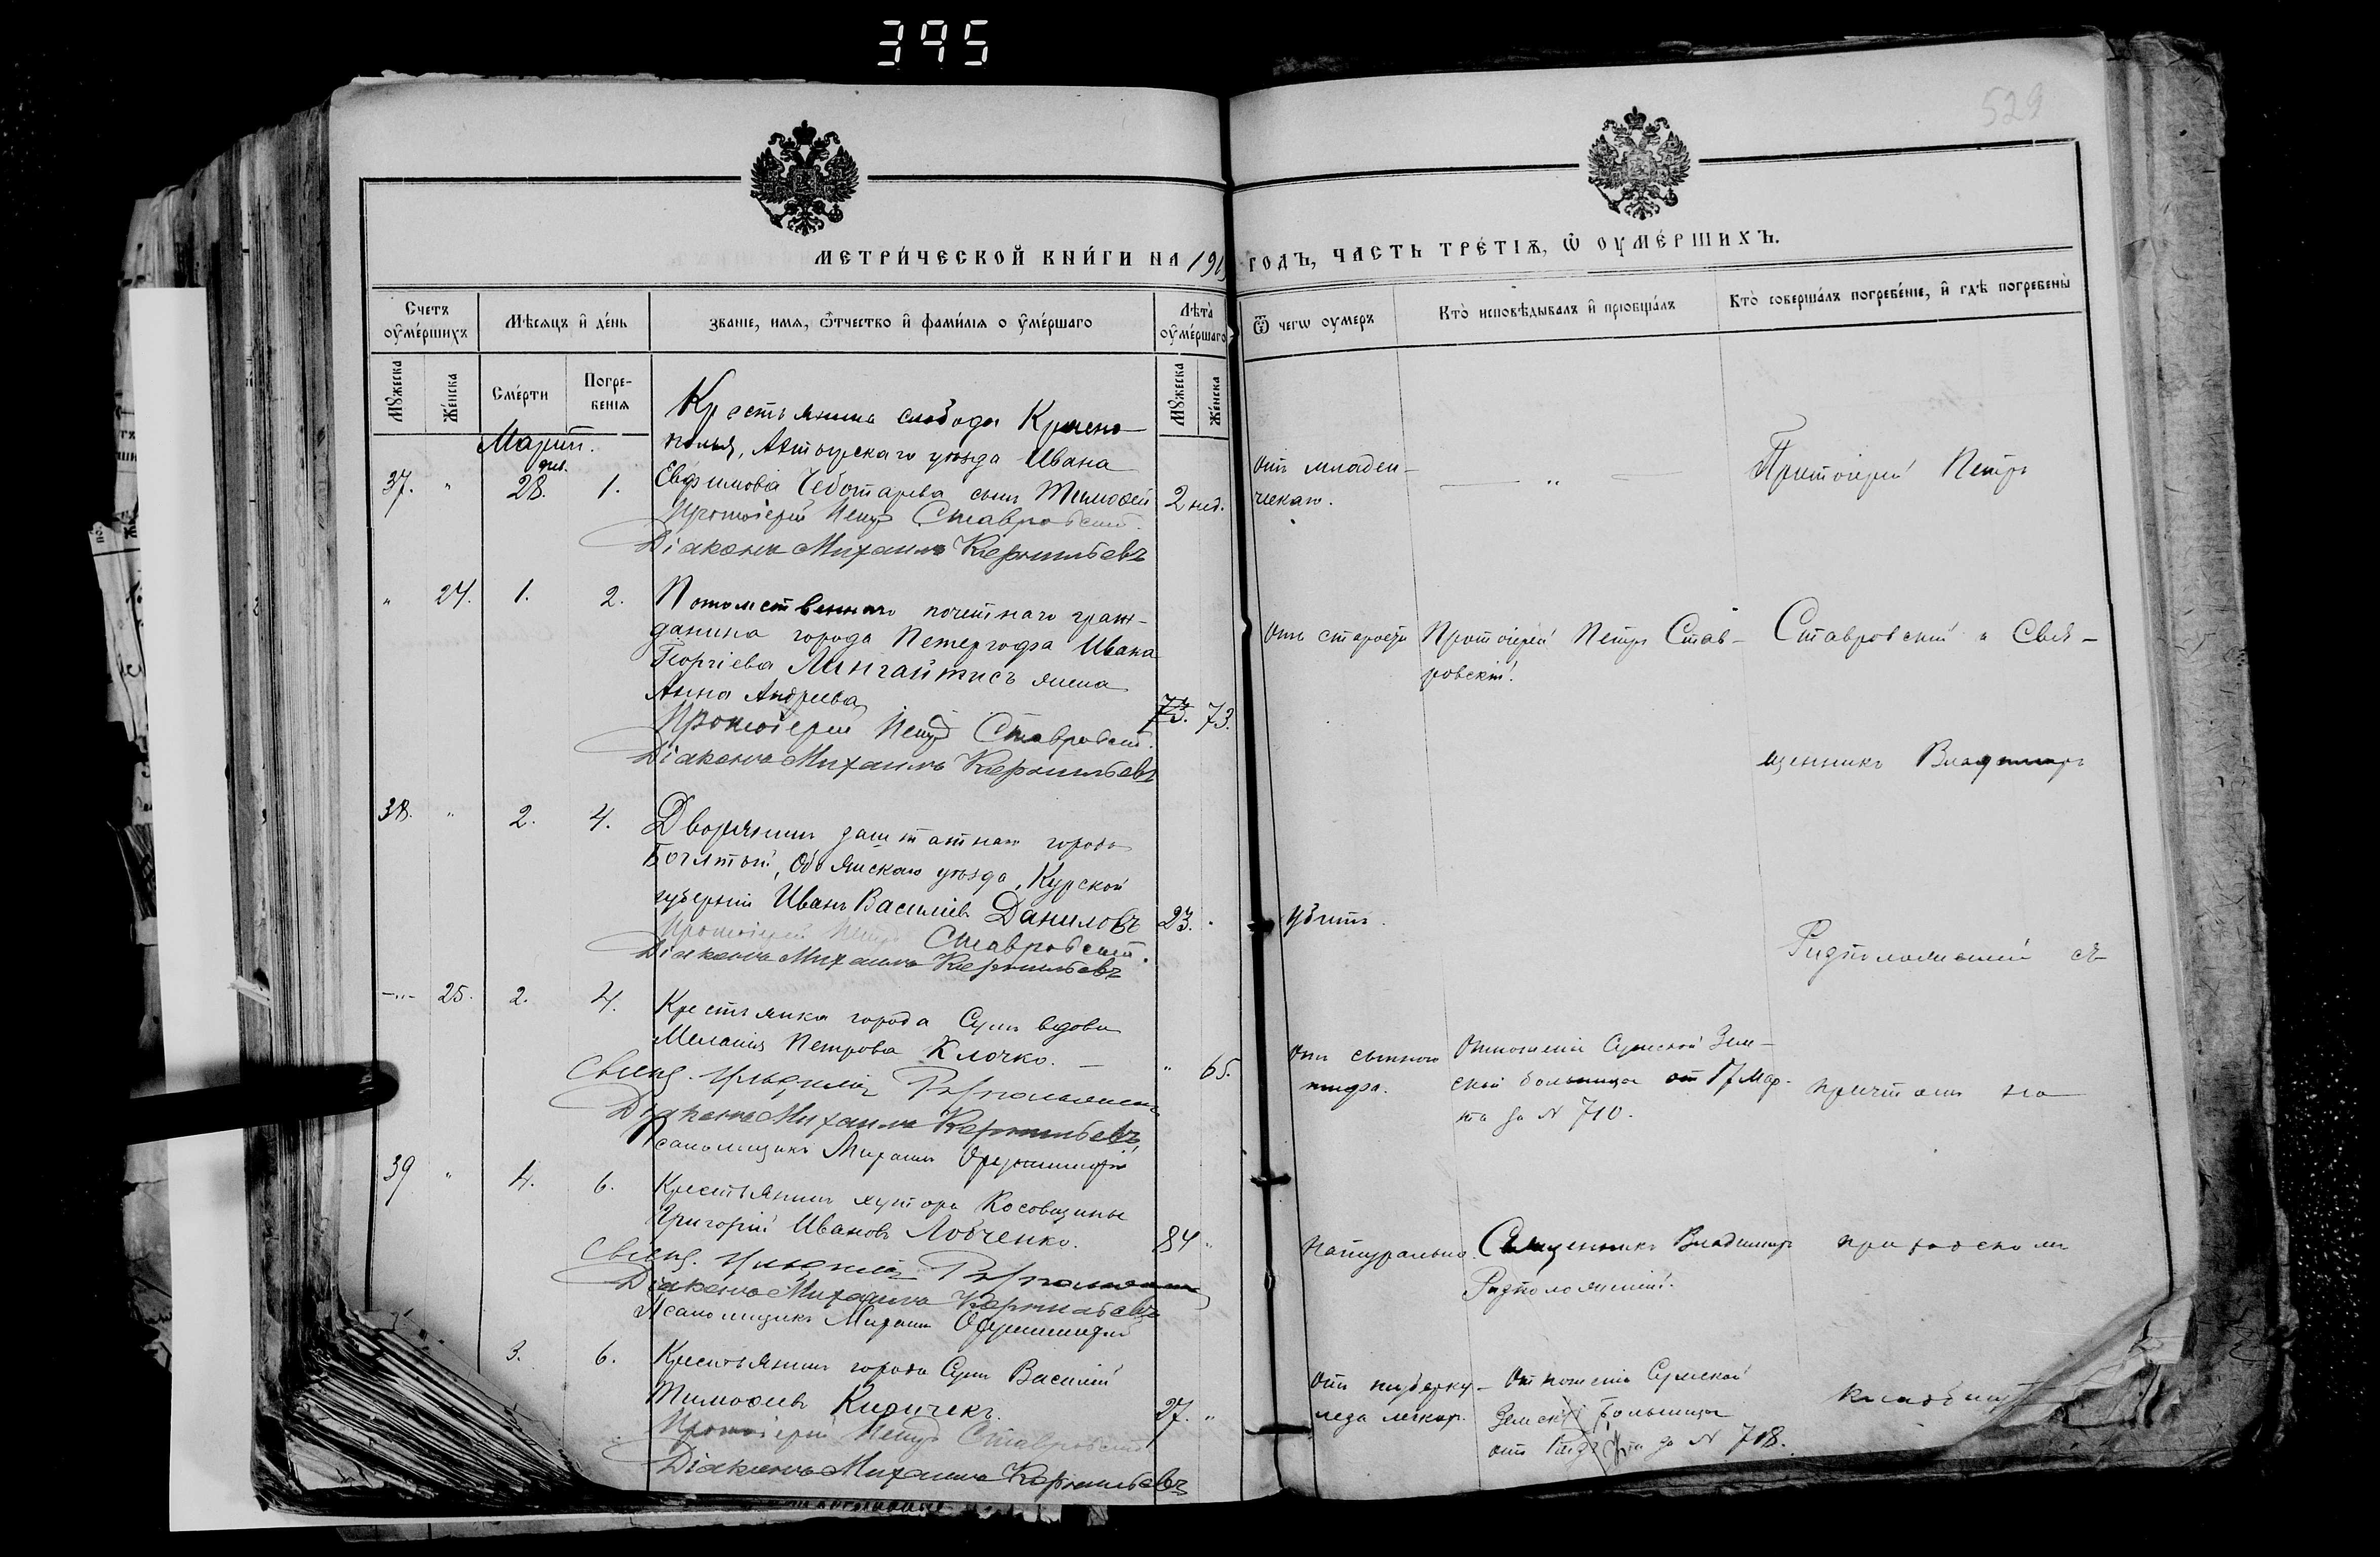 395
529
МЕТРИ́ЧЕСКОЙ КНИ́ГИ НА 19
ГОДЪ, ЧАСТЬ ТРЕ́ТІѦ, Ѿ ОУМЕ́РШИХЪ.
Счетъ оумершихъ
Мѣсяцъ и день
званіе, имѧ, ѿтчество и фамилія оумершаго
Лѣта оумершаго
Мужеска
Женска
Смерти
Погре-
бенія
Мужеска
Женска
Ѿ чегѡ оумеръ
Кто исповѣдывалъ и пріобщалъ
Кто совершалъ погребеніе, и гдѣ погребены
Мартъ.
37. " 28. 1.
Крестьянина слободы Красно-
полья, Ахтырскаго уѣзда Ивана
Евфимова Чеботарева сынъ Тимофей
2 нед.
Протоіерей Петръ Ставровскій.
Діаконъ Михаилъ Корнильевъ
Отъ младен-
ческаго.
— " —
Протоіерей Петръ
" 24. 1. 2.
Потомственнаго почетнаго граж-
данина города Петергофа Ивана
Георгіева Лингайтисъ жена
Анна Андреева
73. 73.
Протоіерей Петръ Ставровскій.
Діаконъ Михаилъ Корнильевъ
Отъ старости
Протоіерей Петръ Став-
ровскій.
Ставровскій и Свя-
щенникъ Владиміръ
38. " 2. 4.
Дворянинъ заштатнаго города
Богатый, Обоянскаго уѣзда, Курской
губерніи Иванъ Василіевъ Даниловъ
23. "
Протоіерей Петръ Ставровскій.
Діаконъ Михаилъ Корнильевъ
Убитъ.
съ
—"— 25. 2. 4.
Крестьянка города Сумъ вдова
Меланія Петрова Клочко. —
" 65.
Свящ. Владиміръ
Діаконъ Михаилъ Корнильевъ
Псаломщикъ Михаилъ
Отъ сыпного
тифа.
Отношеніе Сумской Зем-
ской больницы от 17 Мар-
та за № 710.
причтомъ на
39 " 4. 6.
Крестьянинъ хутора Косовщины
Григорій Ивановъ Лобченко.
84 "
Свящ. Владиміръ
Діаконъ Михаилъ Корнильевъ
Псаломщикъ Михаилъ
Натурально.
Священникъ Владиміръ
приходскомъ
3. 6.
Крестьянинъ города Сумъ Василій
Тимофеевъ Киричекъ.
27. "
Протоіерей Петръ Ставровскій
Діаконъ Михаилъ Корнильевъ
Отъ туберку-
леза легкихъ.
Отношеніе Сумской
Земской больницы
за № 718.
кладбищѣ